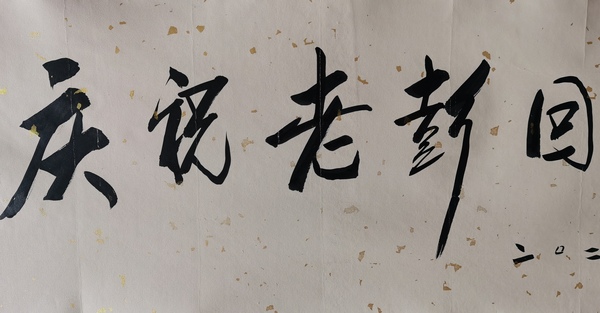 庆祝老彭回
二〇二